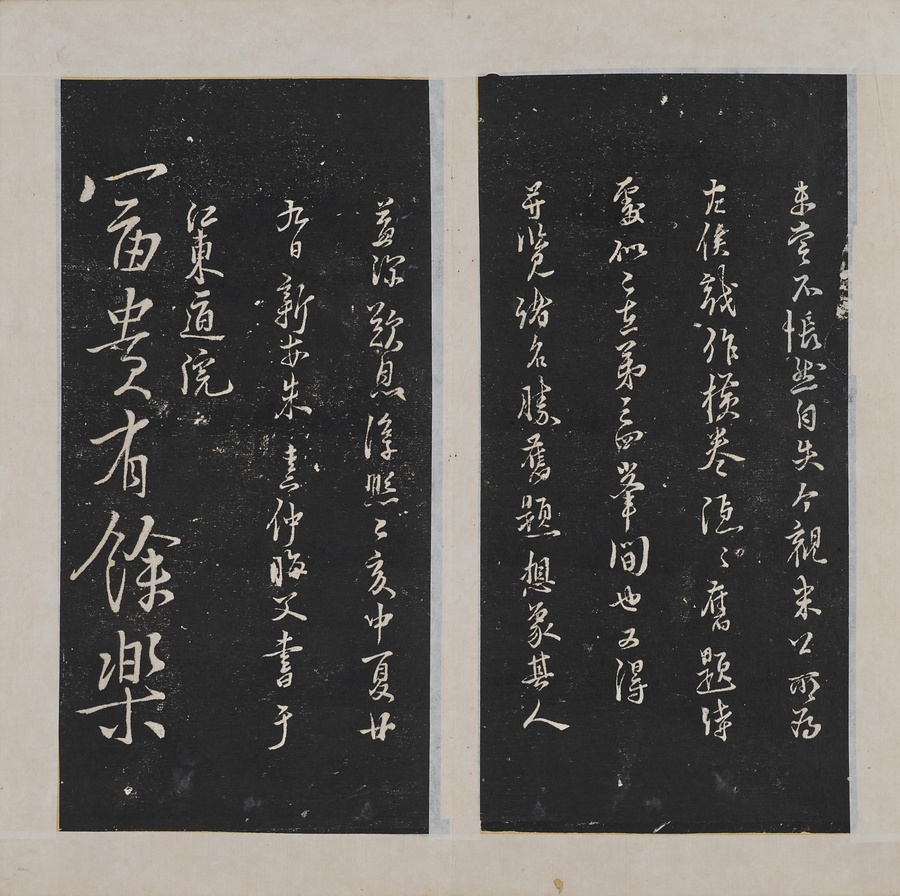 未嘗不悵然自失今觀米公所為
左侯戲作橫卷隱隱舊題詩
處似已在第三四峯間也又得
并覽諸名勝舊題想象其人
益深歎息淳熙己亥中夏廿
九日新安朱熹仲晦父書于
江東道院
富貴有餘樂